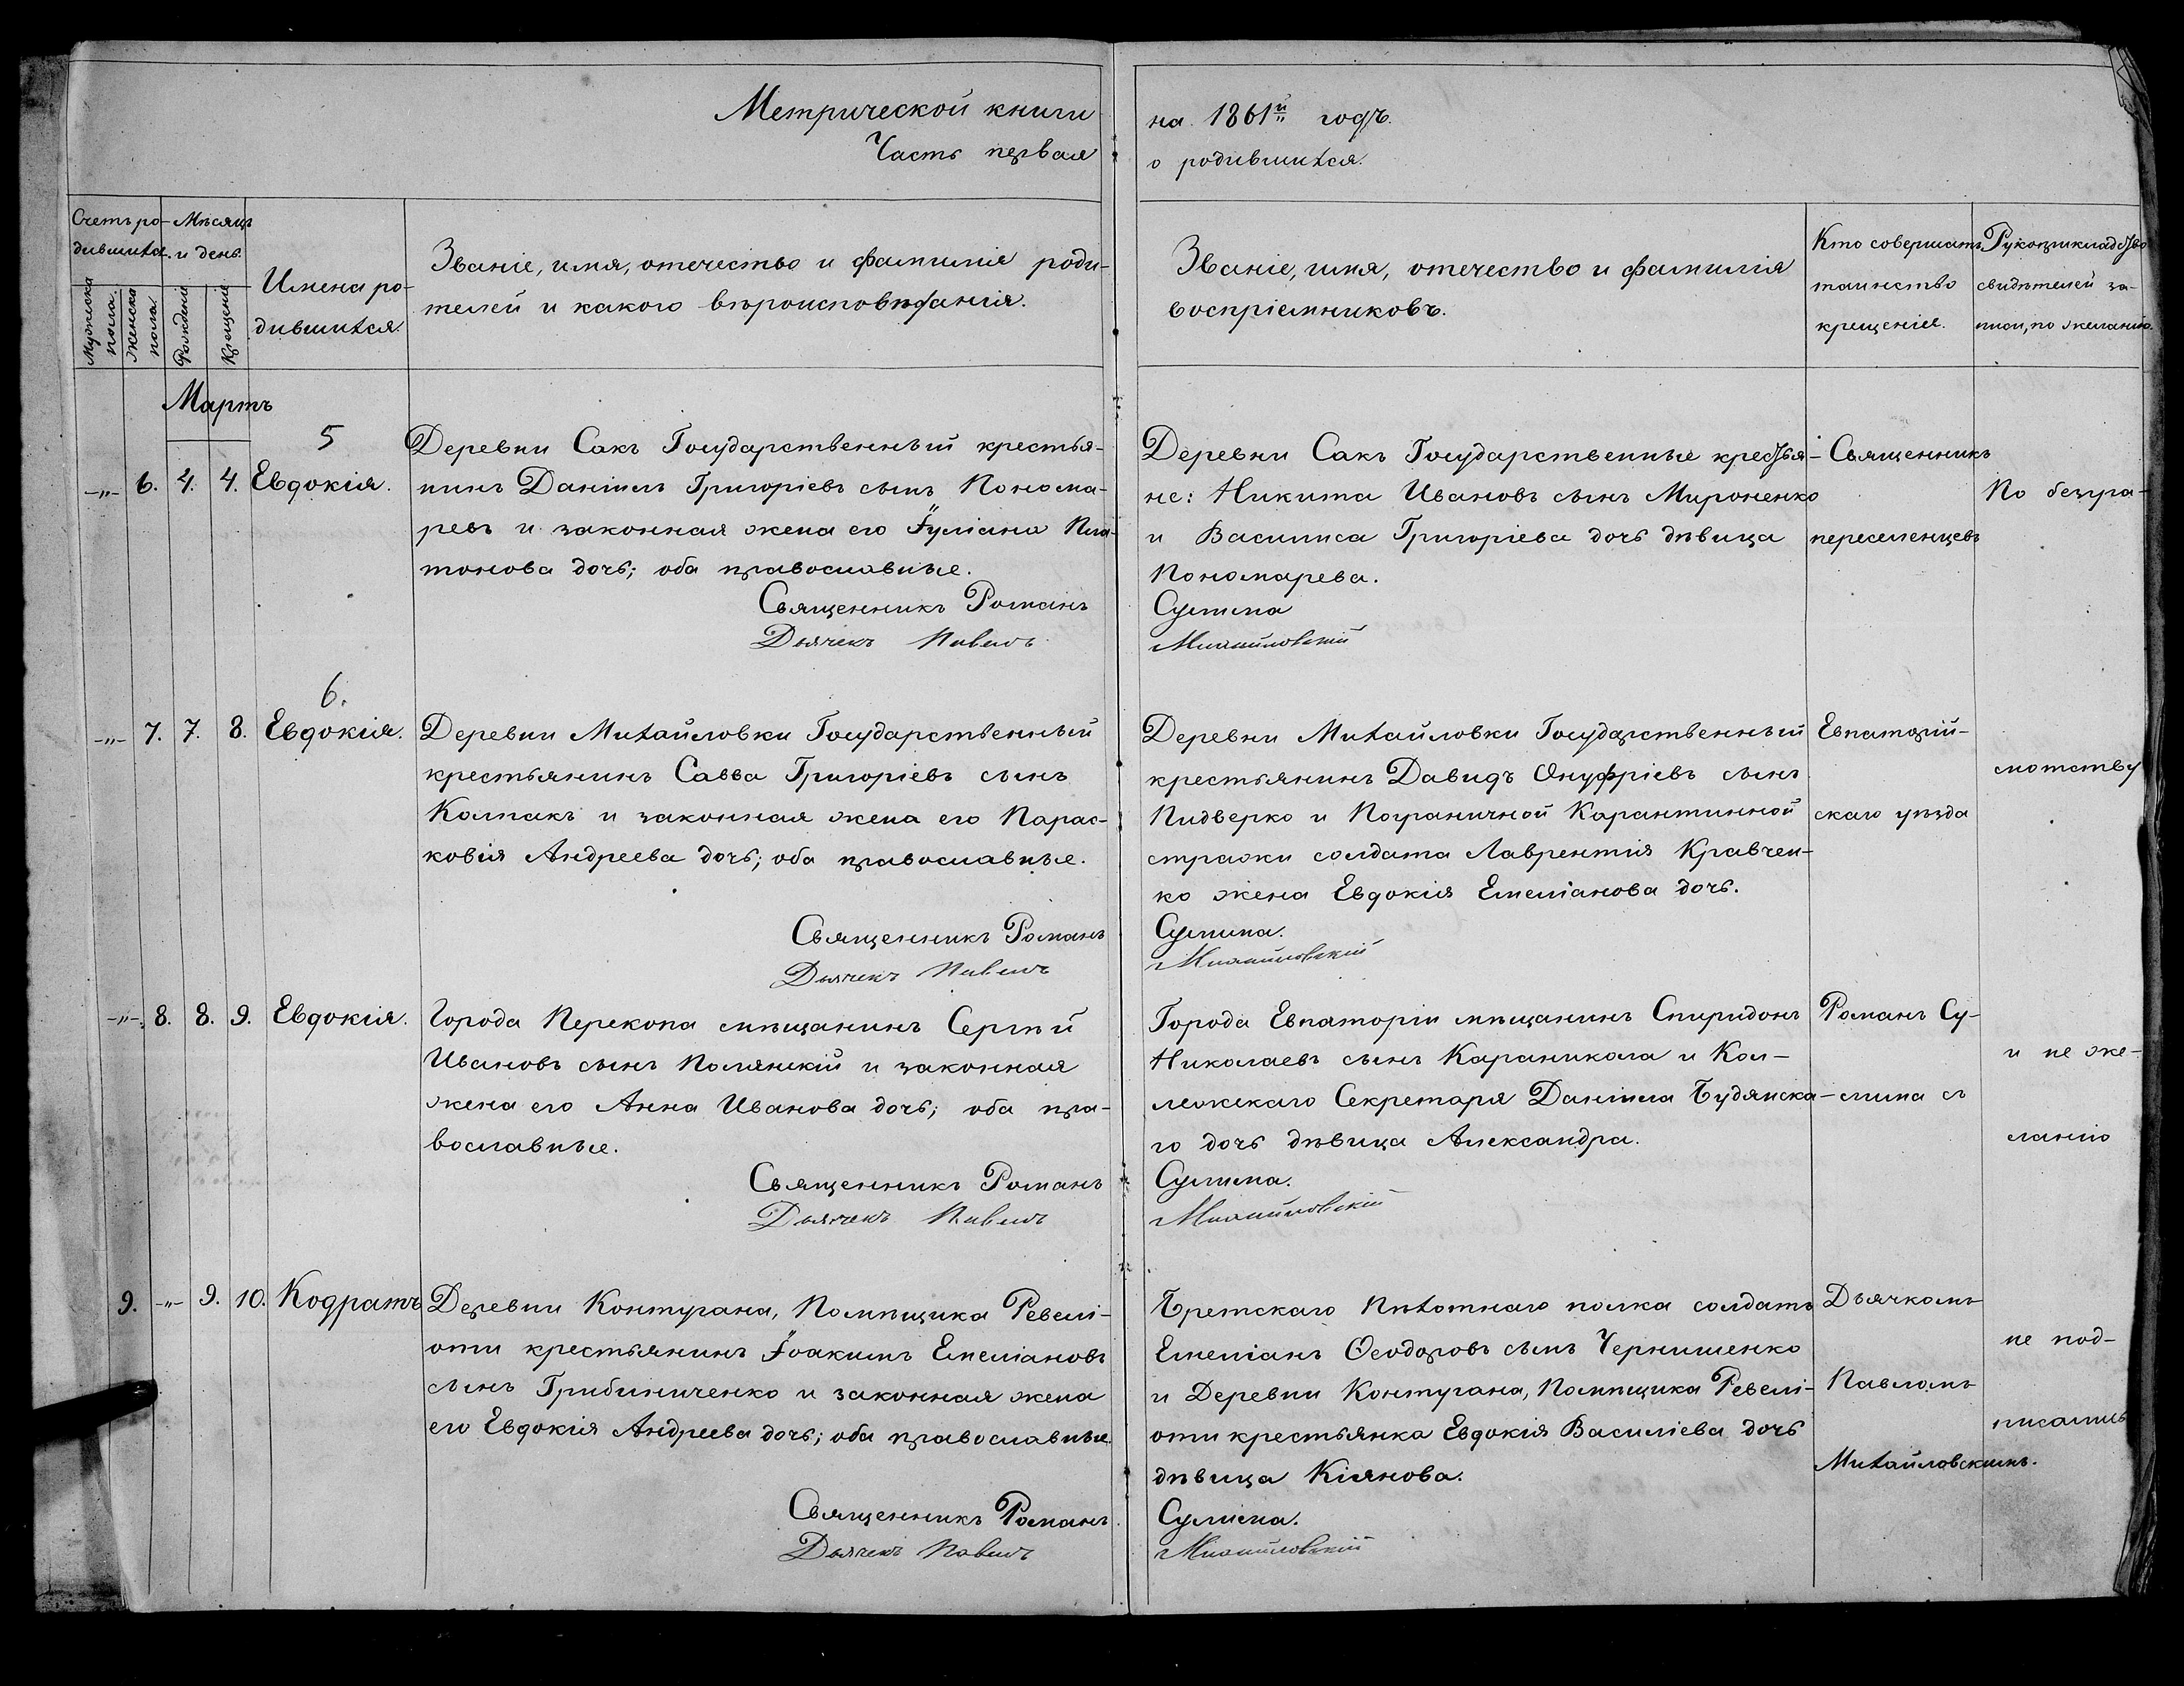 Метрической книги
Часть первая
на 1861й годъ.
о родившихся.
Счетъ ро-
дившихся.
Мѣсяцъ
и день.
Мужеска
пола.
Женска
пола
Рожденія
Крещенія
Имена ро-
дившихся.
Званіе, имя, отечество и фамилія роди-
телей и какого вѣроисповѣданія.
Званіе, имя, отечество и фамилія
воспріемниковъ.
Кто совершалъ
таинство
крещенія.
Рукоприкладство
свидѣтелей за-
писи, по желанію.
Мартъ
5
-"- 6. 4. 4. Евдокія.
Деревни Сакъ Государственный крестья-
нинъ Даніилъ Григоріевъ сынъ Понома-
ревъ и законная жена его Іуліана Пла-
тонова дочь; оба православные.
Священникъ Романъ
Дьячекъ Павелъ
Деревни Сакъ Государственные крестья-
не: Никита Ивановъ сынъ Мироненко
и Василиса Григоріева дочь дѣвица
Пономарева.
Сулима
Михайловскій
Священникъ
переселенцевъ
По безгра-
6.
-"- 7. 7. 8. Евдокія.
Деревни Михайловки Государственный
крестьянинъ Савва Григоріевъ сынъ
Колпакъ и законная жена его Парас-
ковія Андреева дочь; оба православные.
Священникъ Романъ
Дьячекъ Павелъ
Деревни Михайловки Государственный
крестьянинъ Давидъ Онуфріевъ сынъ
Пидверко и Пограничной Карантинной
стражи солдата Лаврентія Кравчен-
ко жена Евдокія Емеліанова дочь.
Сулима.
Михайловскій
Евпаторій-
скаго уѣзда
мотству
-"- 8. 8. 9. Евдокія.
Города Перекопа мѣщанинъ Сергѣй
Ивановъ сынъ Полянскій и законная
жена его Анна Иванова дочь; оба пра-
вославные.
Священникъ Романъ
Дьячекъ Павелъ
Города Евпаторіи мѣщанинъ Спиридонъ
Николаевъ сынъ Караникола и Кол-
лежскаго Секретаря Даніила Будянска-
го дочь дѣвица Александра.
Сулима.
Михайловскій
Романъ Су-
лима съ
и не же-
ланію
9. -"- 9. 10. Кодратъ
Деревни Контугана, Помѣщика Ревелі-
оти крестьянинъ Іоакимъ Емеліановъ
сынъ Грибиниченко и законная жена
его Евдокія Андреева дочь; оба православные.
Священникъ Романъ
Дьячекъ Павелъ
Бретскаго Пѣхотнаго полка солдатъ
Емеліанъ Ѳеодоровъ сынъ Чернишенко
и Деревни Контугана, Помѣщика Ревелі-
оти крестьянка Евдокія Василіева дочь
дѣвица Кіянова.
Сулима.
Михайловскій
Дьячкомъ
Павломъ
Михайловскимъ.
не под-
писались